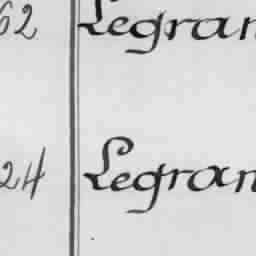 62 Legran
24 Legran